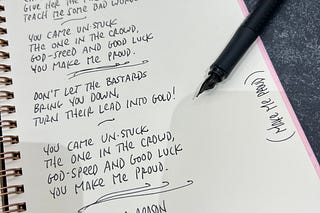 GIVE HER THE
TEACH ME SOME BAD WORDS
YOU CAME UN-STUCK
THE ONE IN THE CROWD,
GOD-SPEED AND GOOD LUCK
YOU MAKE ME PROUD.
DON'T LET THE BASTARDS
BRING YOU DOWN,
TURN THEIR LEAD INTO GOLD!
YOU CAME UN-STUCK
THE ONE IN THE CROWD,
GOD-SPEED AND GOOD LUCK
YOU MAKE ME PROUD.
(MAKE ME PROUD)